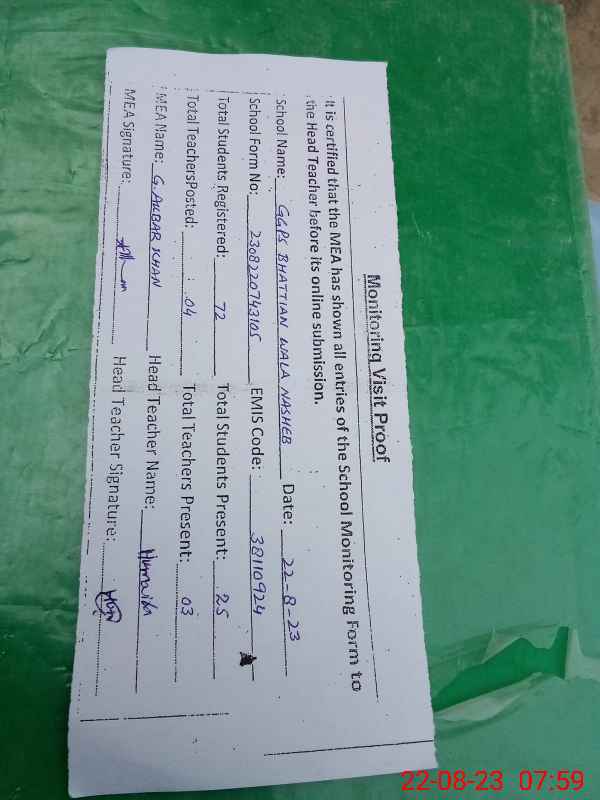 Monitoring Visit Proof
It is certified that the MEA has shown all entries of the School Monitoring Form to
the Head Teacher before its online submission.
School Name: GGPS BHATTIAN WALA NASHEB Date: 22-8-23
School Form No: 2308220743105 EMIS Code: 38110924
Total Students Registered: 72 Total Students Present: 25
Total TeachersPosted: 04 Total Teachers Present: 03
MEA Name: G. AKBAR KHAN Head Teacher Name: Humaira
MEA Signature: Head Teacher Signature:
22-08-23 07:59